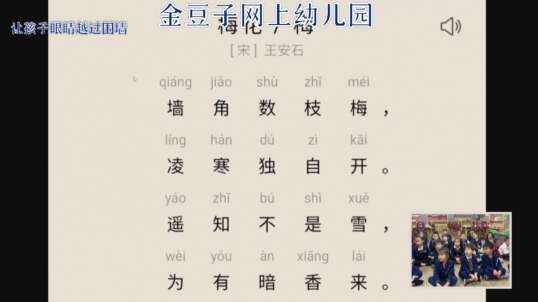 金豆子网上幼儿园
让孩子眼睛越过围墙
梅花 / 梅
［宋］王安石
qiáng jiǎo shù zhī méi
墙角数枝梅，
líng hán dú zì kāi
凌寒独自开。
yáo zhī bú shì xuě
遥知不是雪，
wèi yǒu àn xiāng lái
为有暗香来。